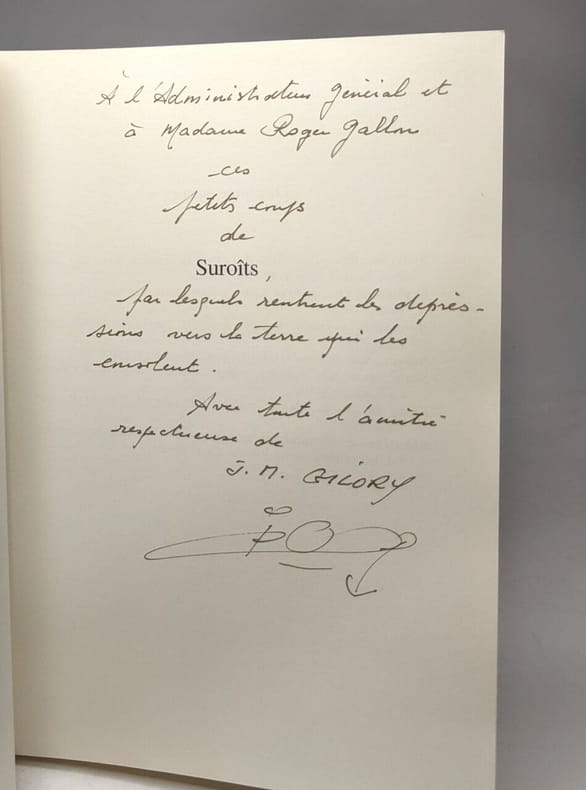 À l'Administrateur Général et
à Madame Roger Gallon
ces
petits coups
de
Suroîts,
par lesquels rentrent les dépres-
sions vers la terre qui les
Avec toute l'amitié
respectueuse de
J. M. GILORY